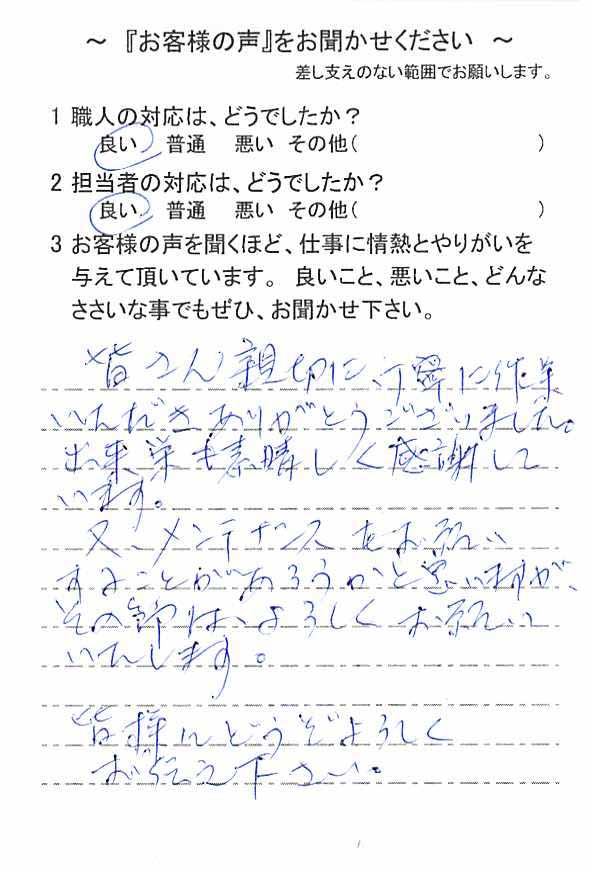 ～ 『お客様の声』をお聞かせください ～
差し支えのない範囲でお願いします。
1 職人の対応は、どうでしたか？
良い 普通 悪い その他( )
2 担当者の対応は、どうでしたか？
良い 普通 悪い その他( )
3 お客様の声を聞くほど、仕事に情熱とやりがいを
与えて頂いています。 良いこと、悪いこと、どんな
ささいな事でもぜひ、お聞かせ下さい。
皆さん親切に、丁寧に作業
いただきありがとうございました。
出来栄も素晴しく感謝して
います。
又、メンテナンスをお願い
することがあろうかと思いますが、
その節は、よろしくお願い
いたします。
皆様にどうぞよろしく
お伝え下さい。